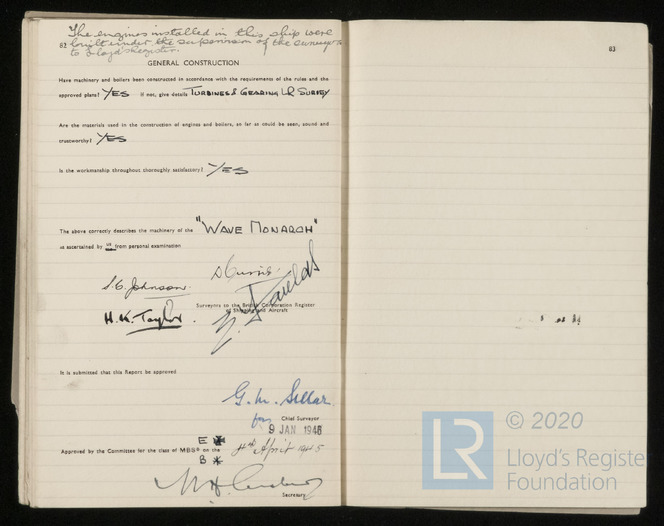 The engines installed in this ship were
82 built under the supervision of the surveyors
to Lloyds Register.
GENERAL CONSTRUCTION
Have machinery and boilers been constructed in accordance with the requirements of the rules and the
approved plans? YES If not, give details TURBINES & GEARING LR SURVEY
Are the materials used in the construction of engines and boilers, so far as could be seen, sound and
trustworthy? YES
Is the workmanship throughout thoroughly satisfactory? YES
The above correctly describes the machinery of the "WAVE MONARCH"
as ascertained by us from personal examination
S. C. Johnson.
H. K. Taylor.
Surveyors to the British Corporation Register
of Shipping and Aircraft
It is submitted that this Report be approved
G. M. Sellar
for Chief Surveyor
9 JAN 1946
E
Approved by the Committee for the class of MBS on the 4th April 1945
B
Secretary
83
LR
© 2020
Lloyd's Register
Foundation